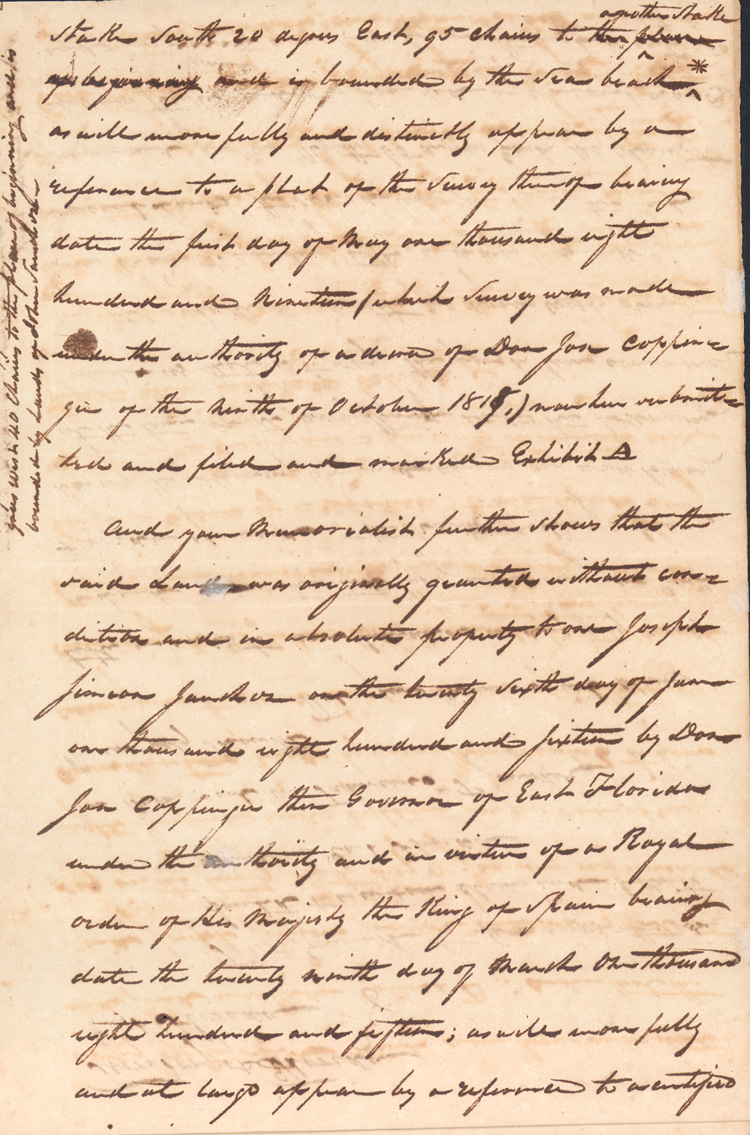 another Stake
Stake South 20 degrees East, 95 chains to the place
of beginning and is bounded by the Sea beach *
as will more fully and distinctly appear by a
reference to a plat of the Survey thereof bearing
date the first day of May one thousand eight
hundred and Nineteen (which Survey was made
under the authority of a decree of Don Jose Coppin=
ger of the Ninth of October 1818,) now here submit=
ted and filed and marked Exhibit A
And your Memorialist further shows that the
said Land was originally granted without con=
dition and in absolute property to one Joseph
Simeon Sanchez on the twenty Sixth day of June
one thousand eight hundred and sixteen by Don
Jose Coppinger then Governor of East Florida
under the authority and in virtue of a Royal
order of His Majesty the King of Spain bearing
date the twenty ninth day of March One thousand
eight hundred and fifteen; as will more fully
and at large appear by a reference to a certified
West 40 Chains to the place of beginning and is
bounded by Lands of John Sanchez